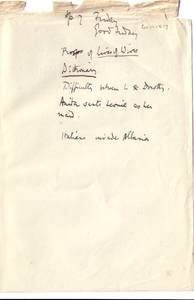 Ap 7 Friday
Good Friday
Proofs of Lives of Wives
Dictionary
Difficulty when L & Dorothy.
Anita sents Leonie as her
maid.
Italians invade Albania